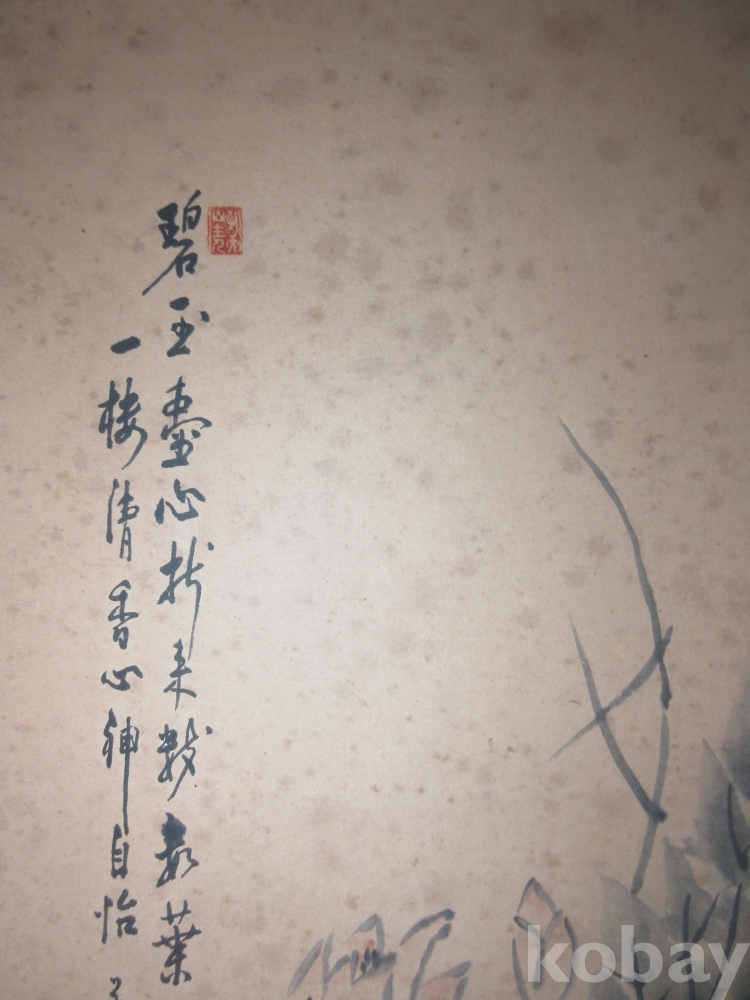 碧玉壺心折来数葉
一楼清香心神自怡
kobay